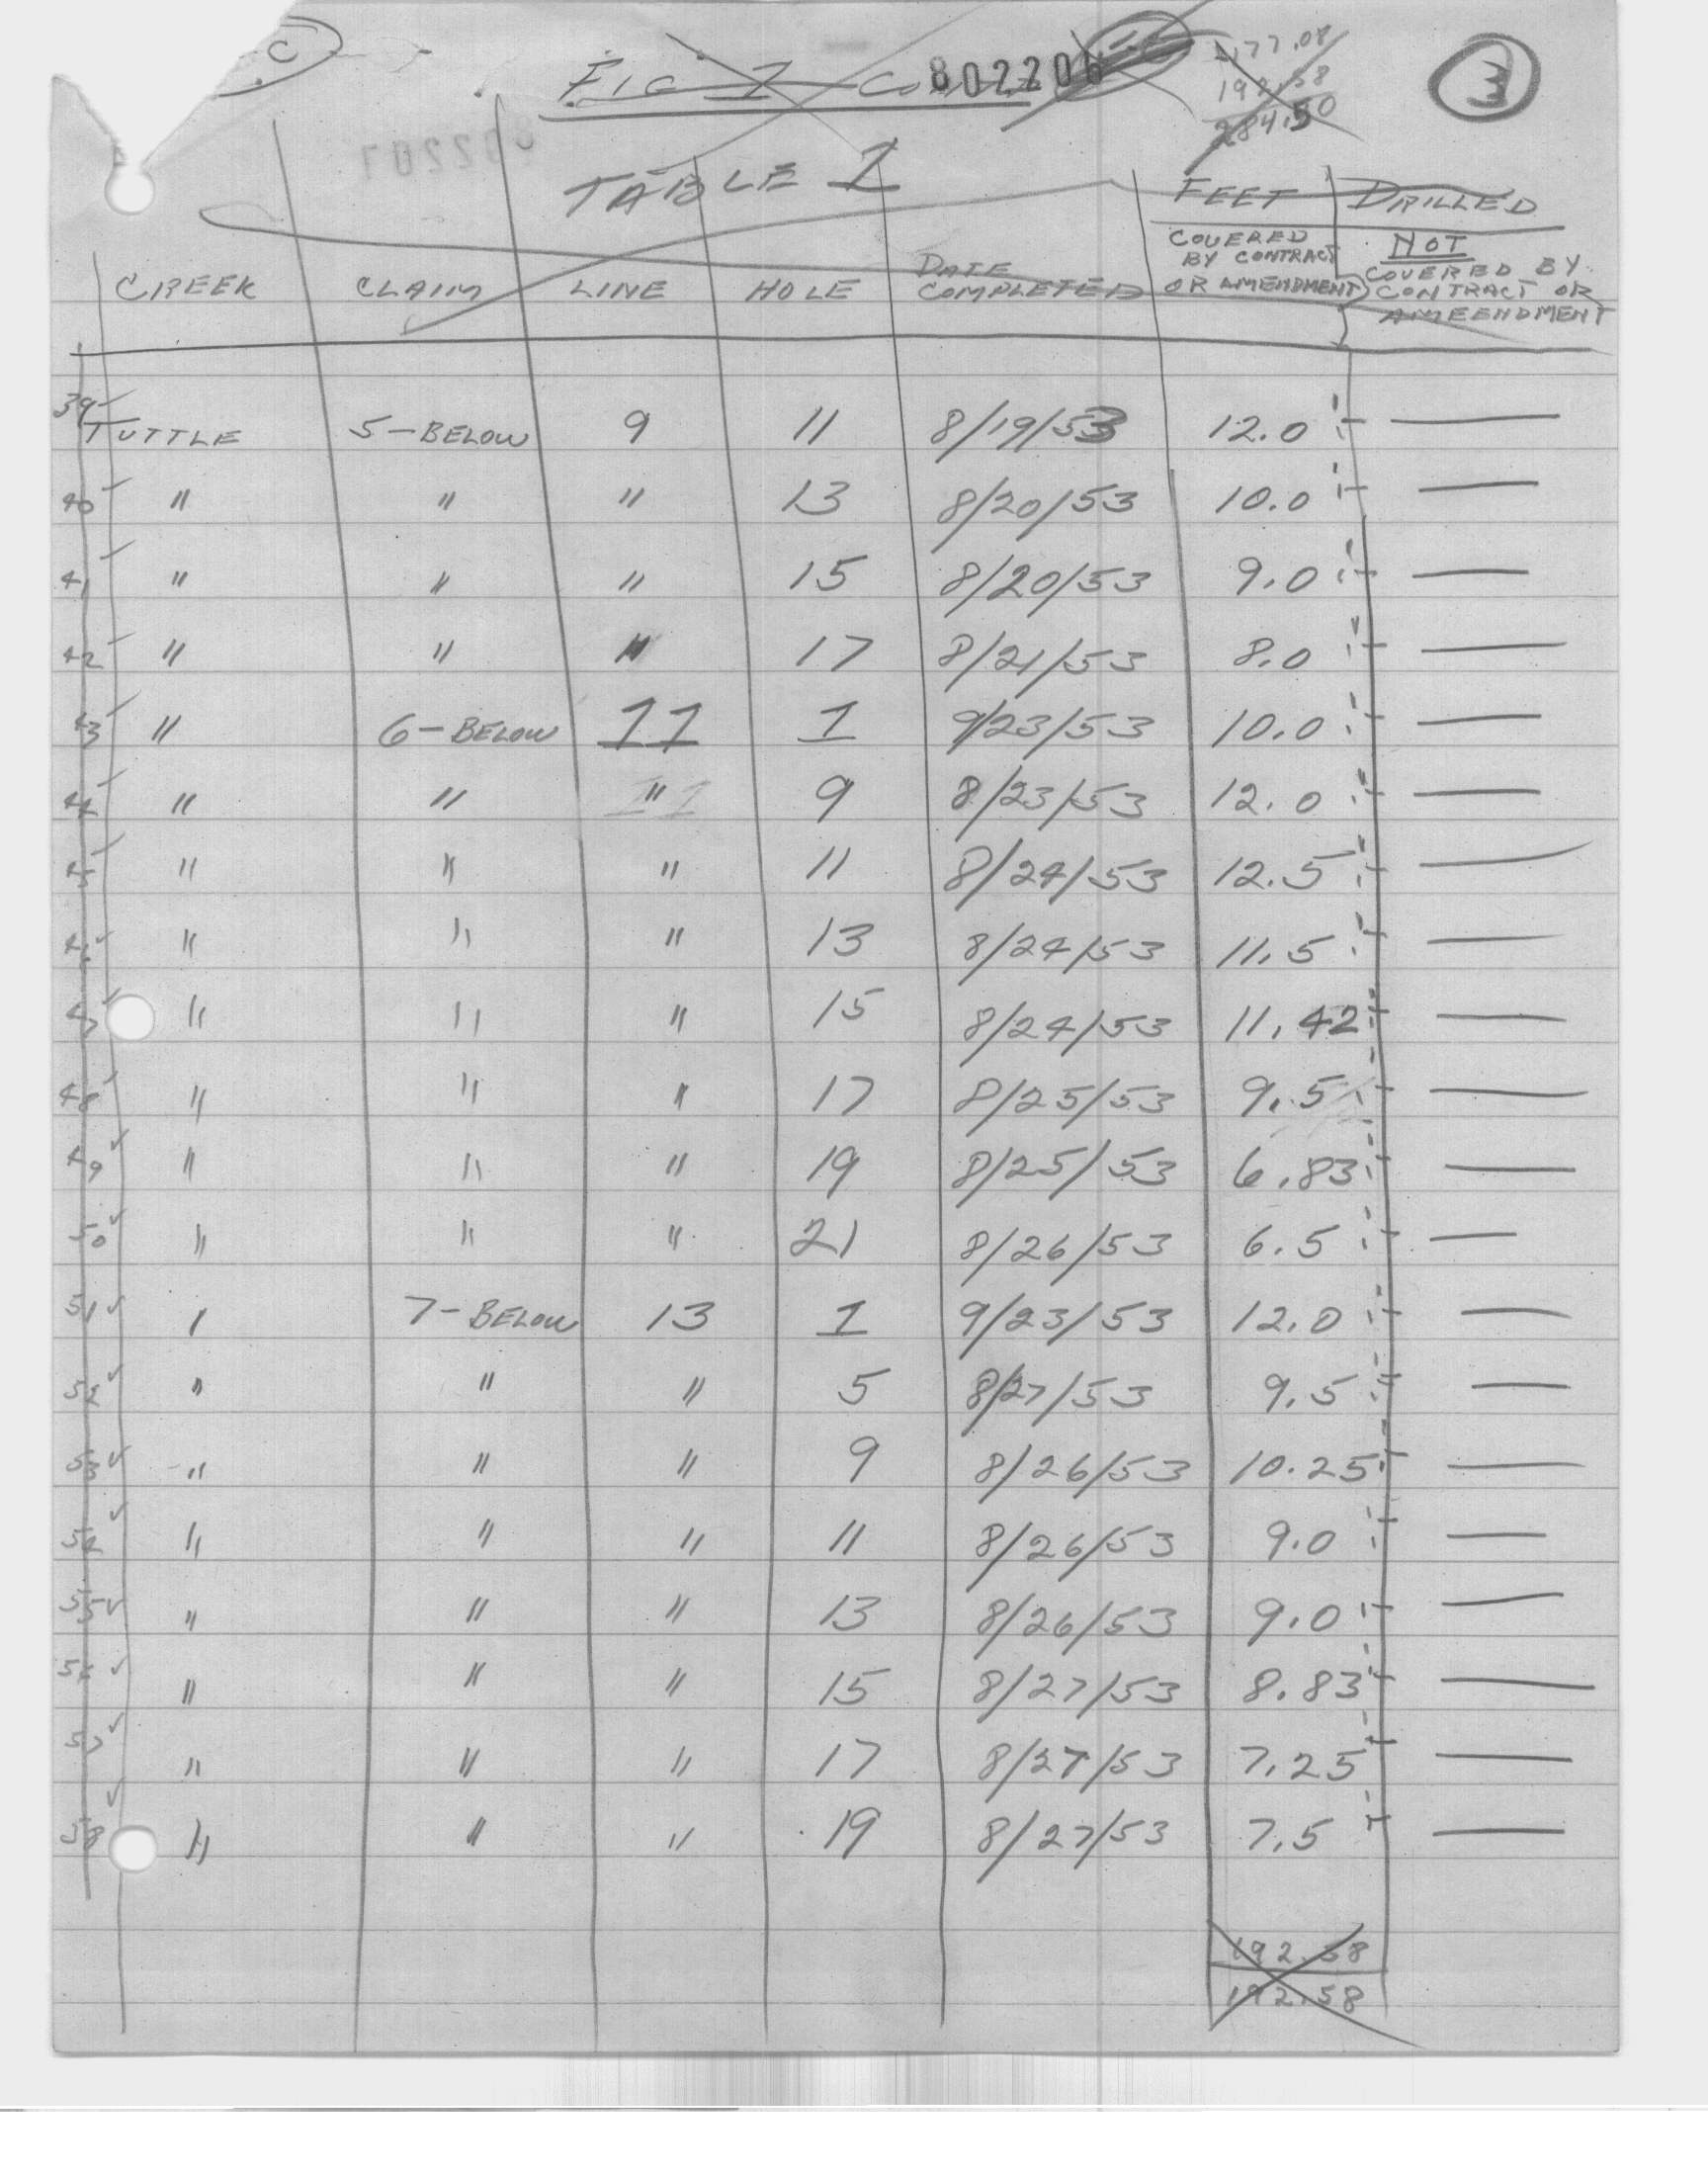 C
FIG 1 802206
477.08
192.58
284.50
3
TABLE 1
FEET DRILLED
CREEK CLAIM LINE HOLE DATE COMPLETED COVERED BY CONTRACT OR AMENDMENT NOT COVERED BY CONTRACT OR AMEENDMENT
39 TUTTLE 5-BELOW 9 11 8/19/53 12.0 —
40 " " " 13 8/20/53 10.0 —
41 " " " 15 8/20/53 9.0 —
42 " " " 17 8/21/53 8.0 —
43 " 6-BELOW 11 1 9/23/53 10.0 —
44 " " " 9 8/23/53 12.0 —
45 " " " 11 8/24/53 12.5 —
46 " " " 13 8/24/53 11.5 —
47 " " " 15 8/24/53 11.42 —
48 " " " 17 8/25/53 9.5 —
49 " " " 19 8/25/53 6.83 —
50 " " " 21 8/26/53 6.5 —
51 " 7-BELOW 13 1 9/23/53 12.0 —
52 " " " 5 8/27/53 9.5 —
53 " " " 9 8/26/53 10.25 —
54 " " " 11 8/26/53 9.0 —
55 " " " 13 8/26/53 9.0 —
56 " " " 15 8/27/53 8.83 —
57 " " " 17 8/27/53 7.25 —
58 " " " 19 8/27/53 7.5 —
192.58
192.58